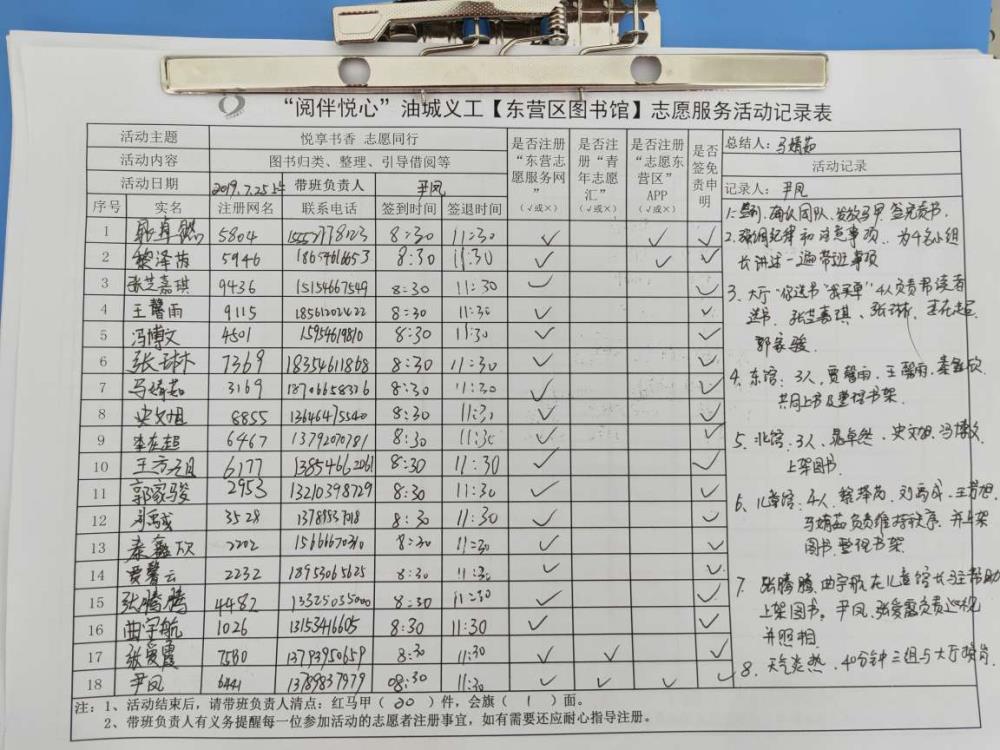 “阅伴悦心”油城义工【东营区图书馆】志愿服务活动记录表
活动主题 悦享书香 志愿同行 是否注册“东营志愿服务网”（√或×） 是否注册“青年志愿汇”（√或×） 是否注册“志愿东营区”APP（√或×） 是否签免责申明 总结人：马婧茹
活动内容 图书归类、整理、引导借阅等 活动记录
活动日期 2019.7.25上午 带班负责人 尹凤 记录人：尹凤
序号 实名 注册网名 联系电话 签到时间 签退时间
1 5804 8:30 11:30 √ √ √
2 黎泽茵 5946 18654616653 8:30 11:30 √ √ √
3 张芝嘉琪 9436 15154667549 8:30 11:30 √ √
4 王馨雨 9115 18561202422 8:30 11:30 √ √
5 冯博文 4501 15954619810 8:30 11:30 √ √
6 张琳 7369 18354611868 8:30 11:30 √ √
7 马婧茹 3169 18706658326 8:30 11:30 √ √
8 史文旭 8855 13646475540 8:30 11:30 √ √
9 李在超 6467 13792070781 8:30 11:30 √ √
10 6177 13854662061 8:30 11:30 √ √
11 郭家骏 2953 13210398729 8:30 11:30 √ √
12 3528 8:30 11:30 √ √
13 秦鑫欣 2202 15666670310 8:30 11:30 √ √
14 贾馨云 2232 18953065625 8:30 11:30 √ √
15 张腾腾 4482 13325035000 8:30 11:30 √ √
16 曲宇航 1026 13153416605 8:30 11:30 √ √
17 张爱霞 7580 13793950659 8:30 11:30 √ √ √
18 尹凤 6441 13789837979 08:30 11:30 √ √ √ √
1、签到，确认团队，发放马甲 签免责书.
2、强调纪律和注意事项，为4名小组
长讲述一遍带班事项
3、大厅“你选书 我买单”4人负责帮读者
选书，张芝嘉琪、张琳、李在超
郭家骏.
4、东馆：3人，贾馨雨，王馨雨，秦鑫欣
共同上书及整理书架.
5、北馆，3人，史文旭，冯博文
上架图书.
6、儿童馆：4人，黎泽茵，
马婧茹负责维持秩序，并上架
图书，整理书架.
7、张腾腾、曲宇航在儿童馆长驻帮助
上架图书，尹凤、张爱霞负责巡视
并照相
8、天气炎热，40分钟三组与大厅换岗
注：1、活动结束后，请带班负责人清点：红马甲（20）件，会旗（1）面。
2、带班负责人有义务提醒每一位参加活动的志愿者注册事宜，如有需要还应耐心指导注册。